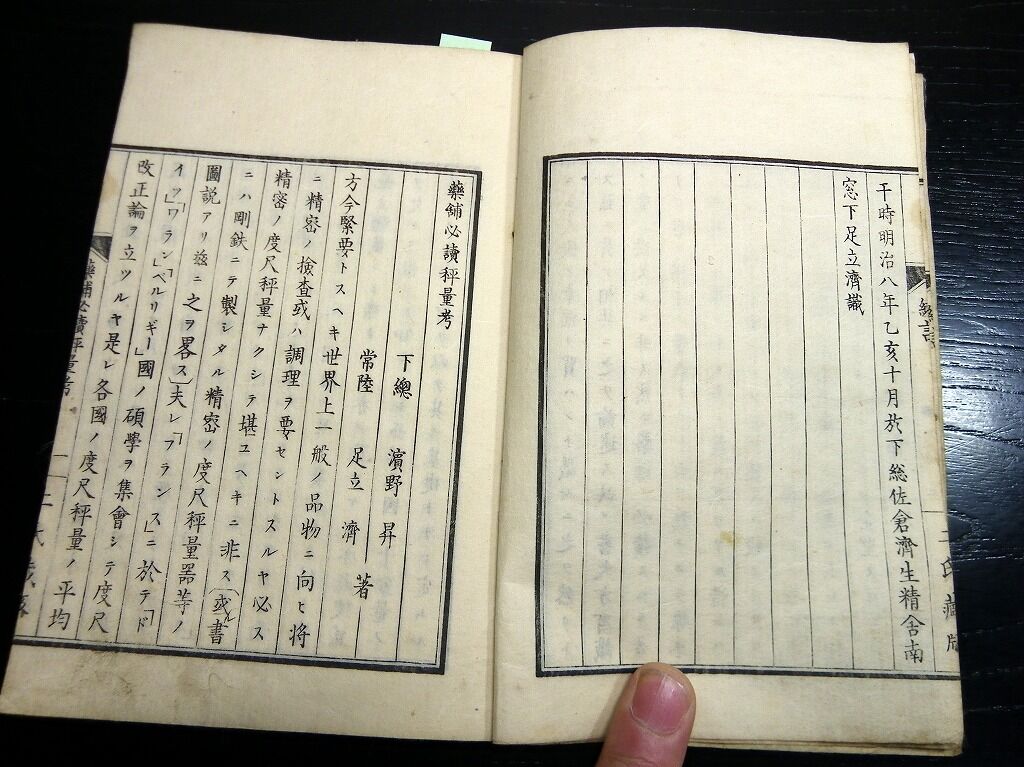 干時明治八年乙亥十月於下総佐倉濟生精舍南
窓下足立濟識
緒言
二氏藏版
藥舖必讀秤量考
下總 濱野 昇
常陸 足立 濟 著
方今緊要トスヘキ世界上一般ノ品物ニ向ヒ將
ニ精密ノ檢査或ハ調理ヲ要セントスルヤ必ス
精密ノ度尺秤量ナクシテ堪ユヘキニ非ス(或ル書
ニハ剛鉄ニテ製シタル精密ノ度尺秤量器等ノ
圖説アリ茲ニ之ヲ畧ス)夫レ「フランス」ニ於テ「ド
イツ」「ワラン」「ベルリギー」國ノ碩學ヲ集會シテ度尺
改正論ヲ立ツルヤ是レ各國ノ度尺秤量ノ平均
藥舖必讀秤量考
一
二氏藏版